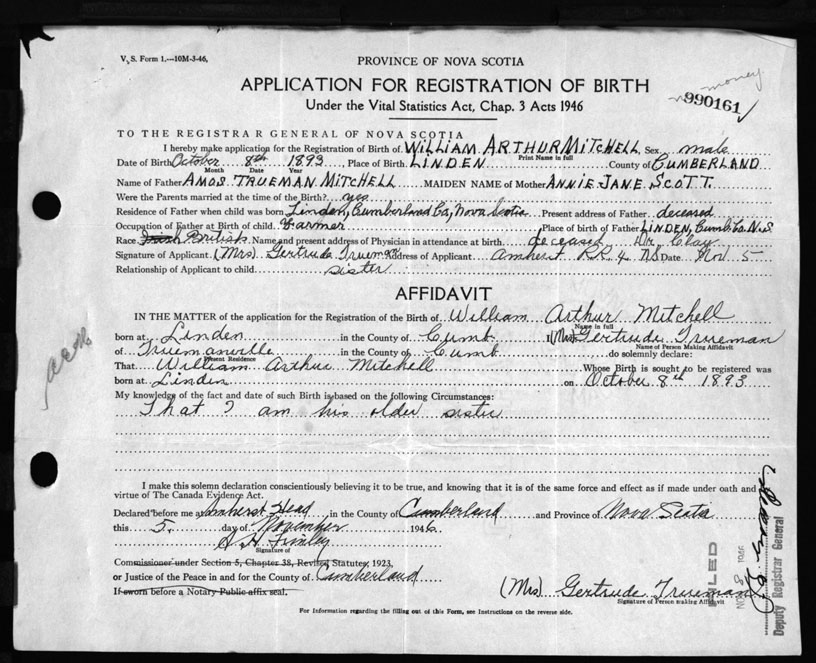 V. S. Form 1.—10M-3-46.
PROVINCE OF NOVA SCOTIA
APPLICATION FOR REGISTRATION OF BIRTH
Under the Vital Statistics Act, Chap. 3 Acts 1946
money
990161
TO THE REGISTRAR GENERAL OF NOVA SCOTIA
I hereby make application for the Registration of Birth of WILLIAM ARTHUR MITCHELL Sex male
Print Name in full
Date of Birth October 8th 1893, Place of Birth LINDEN County of CUMBERLAND
Month Date Year
Name of Father AMOS TRUEMAN MITCHELL MAIDEN NAME of Mother ANNIE JANE SCOTT.
Were the Parents married at the time of the Birth? yes
Residence of Father when child was born Linden, Cumberland Co, Nova Scotia Present address of Father deceased
Occupation of Father at Birth of child. Farmer Place of birth of Father LINDEN, Cumb. Co. N.S
Race Irish British Name and present address of Physician in attendance at birth deceased Dr. Clay
Signature of Applicant (Mrs) Gertrude Trueman Address of Applicant Amherst RR 4 NS Date Nov 5
Relationship of Applicant to child sister
AFFIDAVIT
IN THE MATTER of the application for the Registration of the Birth of William Arthur Mitchell
Name in full
born at Linden in the County of Cumb I (Mrs) Gertrude Trueman
Name of Person Making Affidavit
of Truemanville in the County of Cumb do solemnly declare:
Present Residence
That William Arthur Mitchell Whose Birth is sought to be registered was
born at Linden on October 8th 1893
My knowledge of the fact and date of such Birth is based on the following Circumstances:
That I am his older sister
I make this solemn declaration conscientiously believing it to be true, and knowing that it is of the same force and effect as if made under oath and
virtue of The Canada Evidence Act.
Declared before me at Amherst Head in the County of Cumberland and Province of Nova Scotia
this 5. day of November 1946.
A H Finley
Signature of
Commissioner under Section 5, Chapter 38, Revised Statutes, 1923,
or Justice of the Peace in and for the County of Cumberland
If sworn before a Notary Public affix seal.
(Mrs) Gertrude Trueman
Signature of Person making Affidavit
For Information regarding the filling out of this Form, see Instructions on the reverse side.
NOV 8 1946
Deputy Registrar General